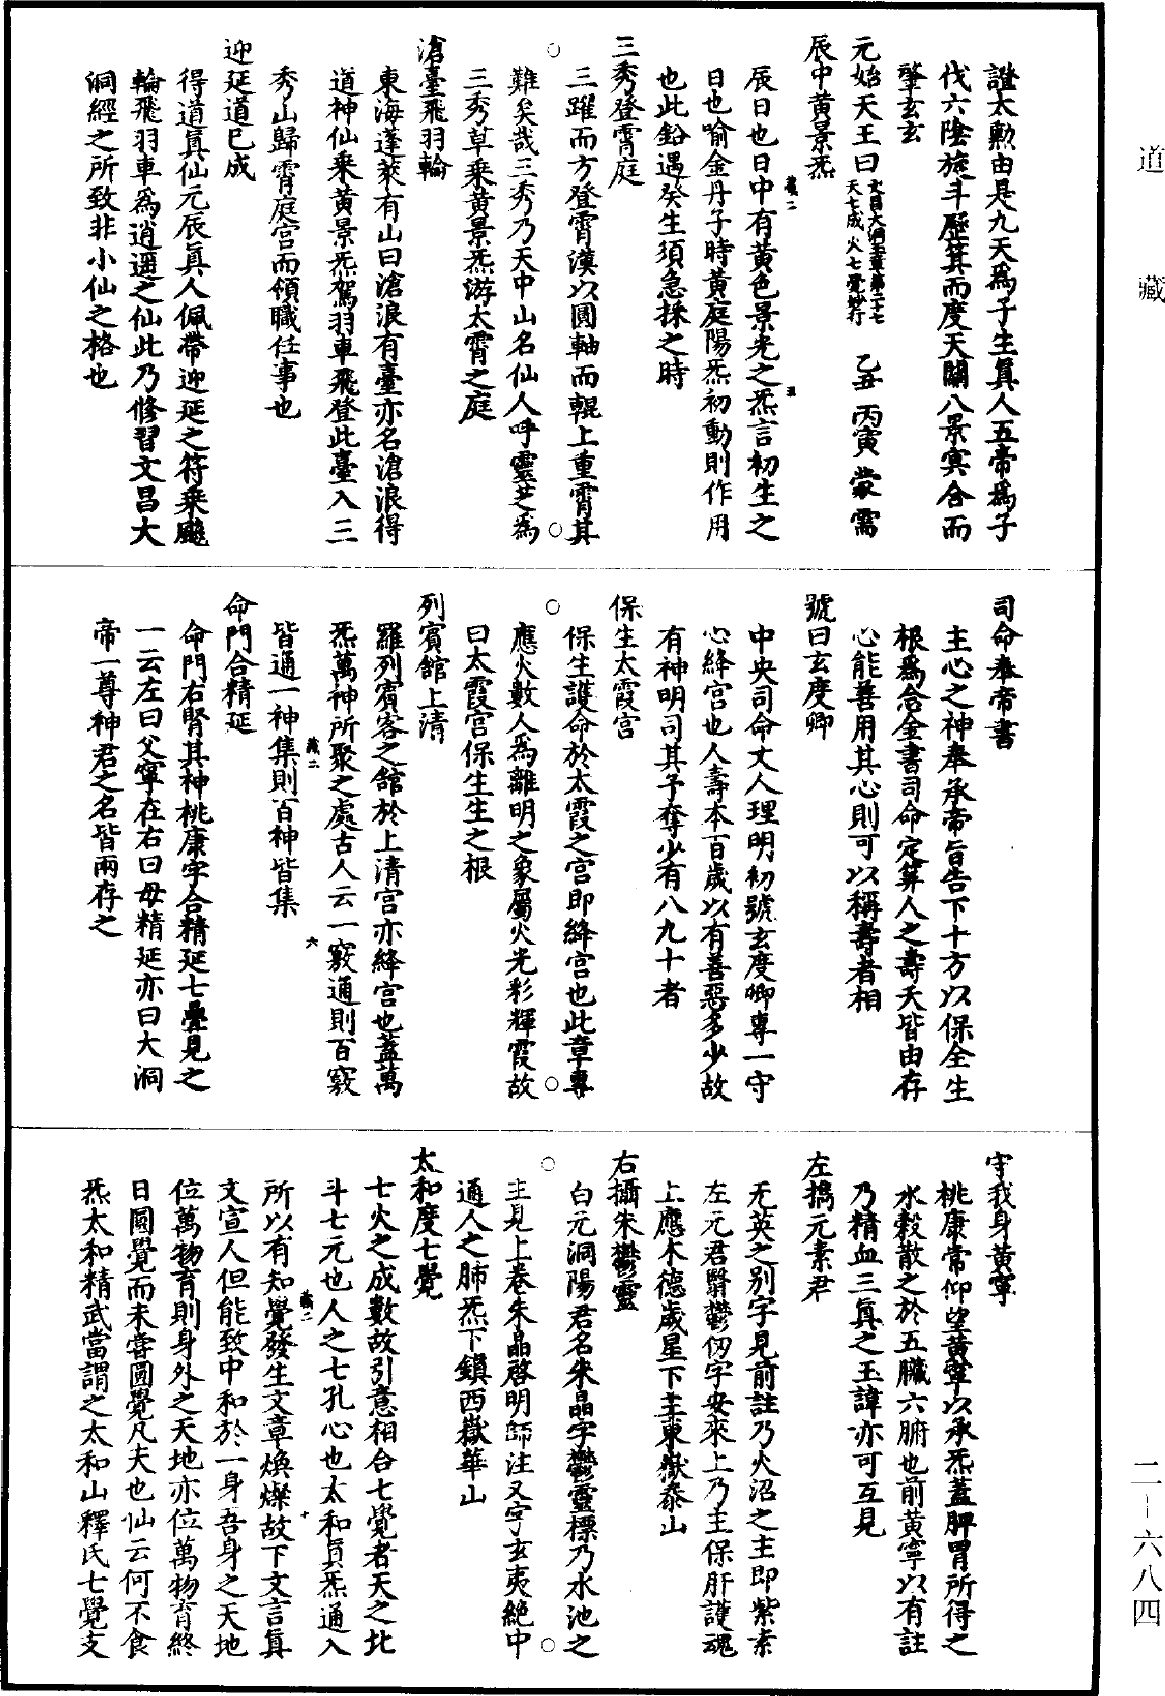 道藏
二—六八四
證太勲由是九天爲子生眞人五帝爲子
伐六陰旋斗歷箕而度天關八景㝠合而
肇玄玄
元始天王曰 文昌大洞玉章第二十七 天七成火七覺妙行 乙丑 丙寅 蒙 需
辰中黄景炁
辰日也日中有黄色景光之炁言初生之
日也喻金丹子時黄庭陽炁初動則作用
也此鉛遇癸生須急採之時
三秀登霄庭
三躍而方登霄漢以圓軸而輥上重霄其
難矣哉三秀乃天中山名仙人呼靈芝爲
三秀草乘黄景炁游太霄之庭
滄臺飛羽輪
東海蓬萊有山曰滄浪有臺亦名滄浪得
道神仙乘黄景炁駕羽車飛登此臺入三
秀山歸霄庭宫而領職任事也
迎延道已成
得道眞仙元辰眞人佩帶迎延之符乘飈
輪飛羽車爲逍遥之仙此乃修習文昌大
洞經之所致非小仙之格也
司命奉帝書
主心之神奉承帝旨告下十方以保全生
根爲念金書司命定筭人之壽夭皆由存
心能善用其心則可以稱壽者相
號曰玄度卿
中央司命丈人理明初號玄度卿專一守
心絳宫也人壽本百歲以有善惡多少故
有神明司其子奪少有八九十者
保生太霞宫
保生護命於太霞之宫即絳宫也此章專
應火數人爲離明之象屬火光彩輝霞故
曰太霞宫保生生之根
列賓舘上清
羅列賓客之舘於上清宫亦絳宫也蓋萬
炁萬神所聚之處古人云一竅通則百竅
皆通一神集則百神皆集
命門合精延
命門右腎其神桃康字合精延七疊見之
一云左曰父寧在右曰母精延亦曰大洞
帝一尊神君之名皆兩存之
守我身黄寧
桃康常仰望黄寧以承炁蓋脾胃所得之
水穀散之於五臟六腑也前黄寧以有註
乃精血三眞之王諱亦可互見
左攜元素君
无英之别字見前註乃火沼之主即紫素
左元君翳鬱仞字安來上乃主保肝護魂
上應木德歲星下主東嶽泰山
右攝朱鬱靈
白元洞陽君名朱晶字鬱靈標乃水池之
主見上卷朱晶啓明篩注又字玄夷絶中
通人之肺炁下鎮西嶽華山
太和度七覺
七火之成數故引意相合七覺者天之北
斗七元也人之七孔心也太和眞炁通入
所以有知覺發生文章煥爍故下文言眞
文宣人但能致中和於一身吾身之天地
位萬物育則身外之天地亦位萬物育終
日圓覺而未嘗圓覺凡夫也仙云何不食
炁太和精武當謂之太和山釋氏七覺支